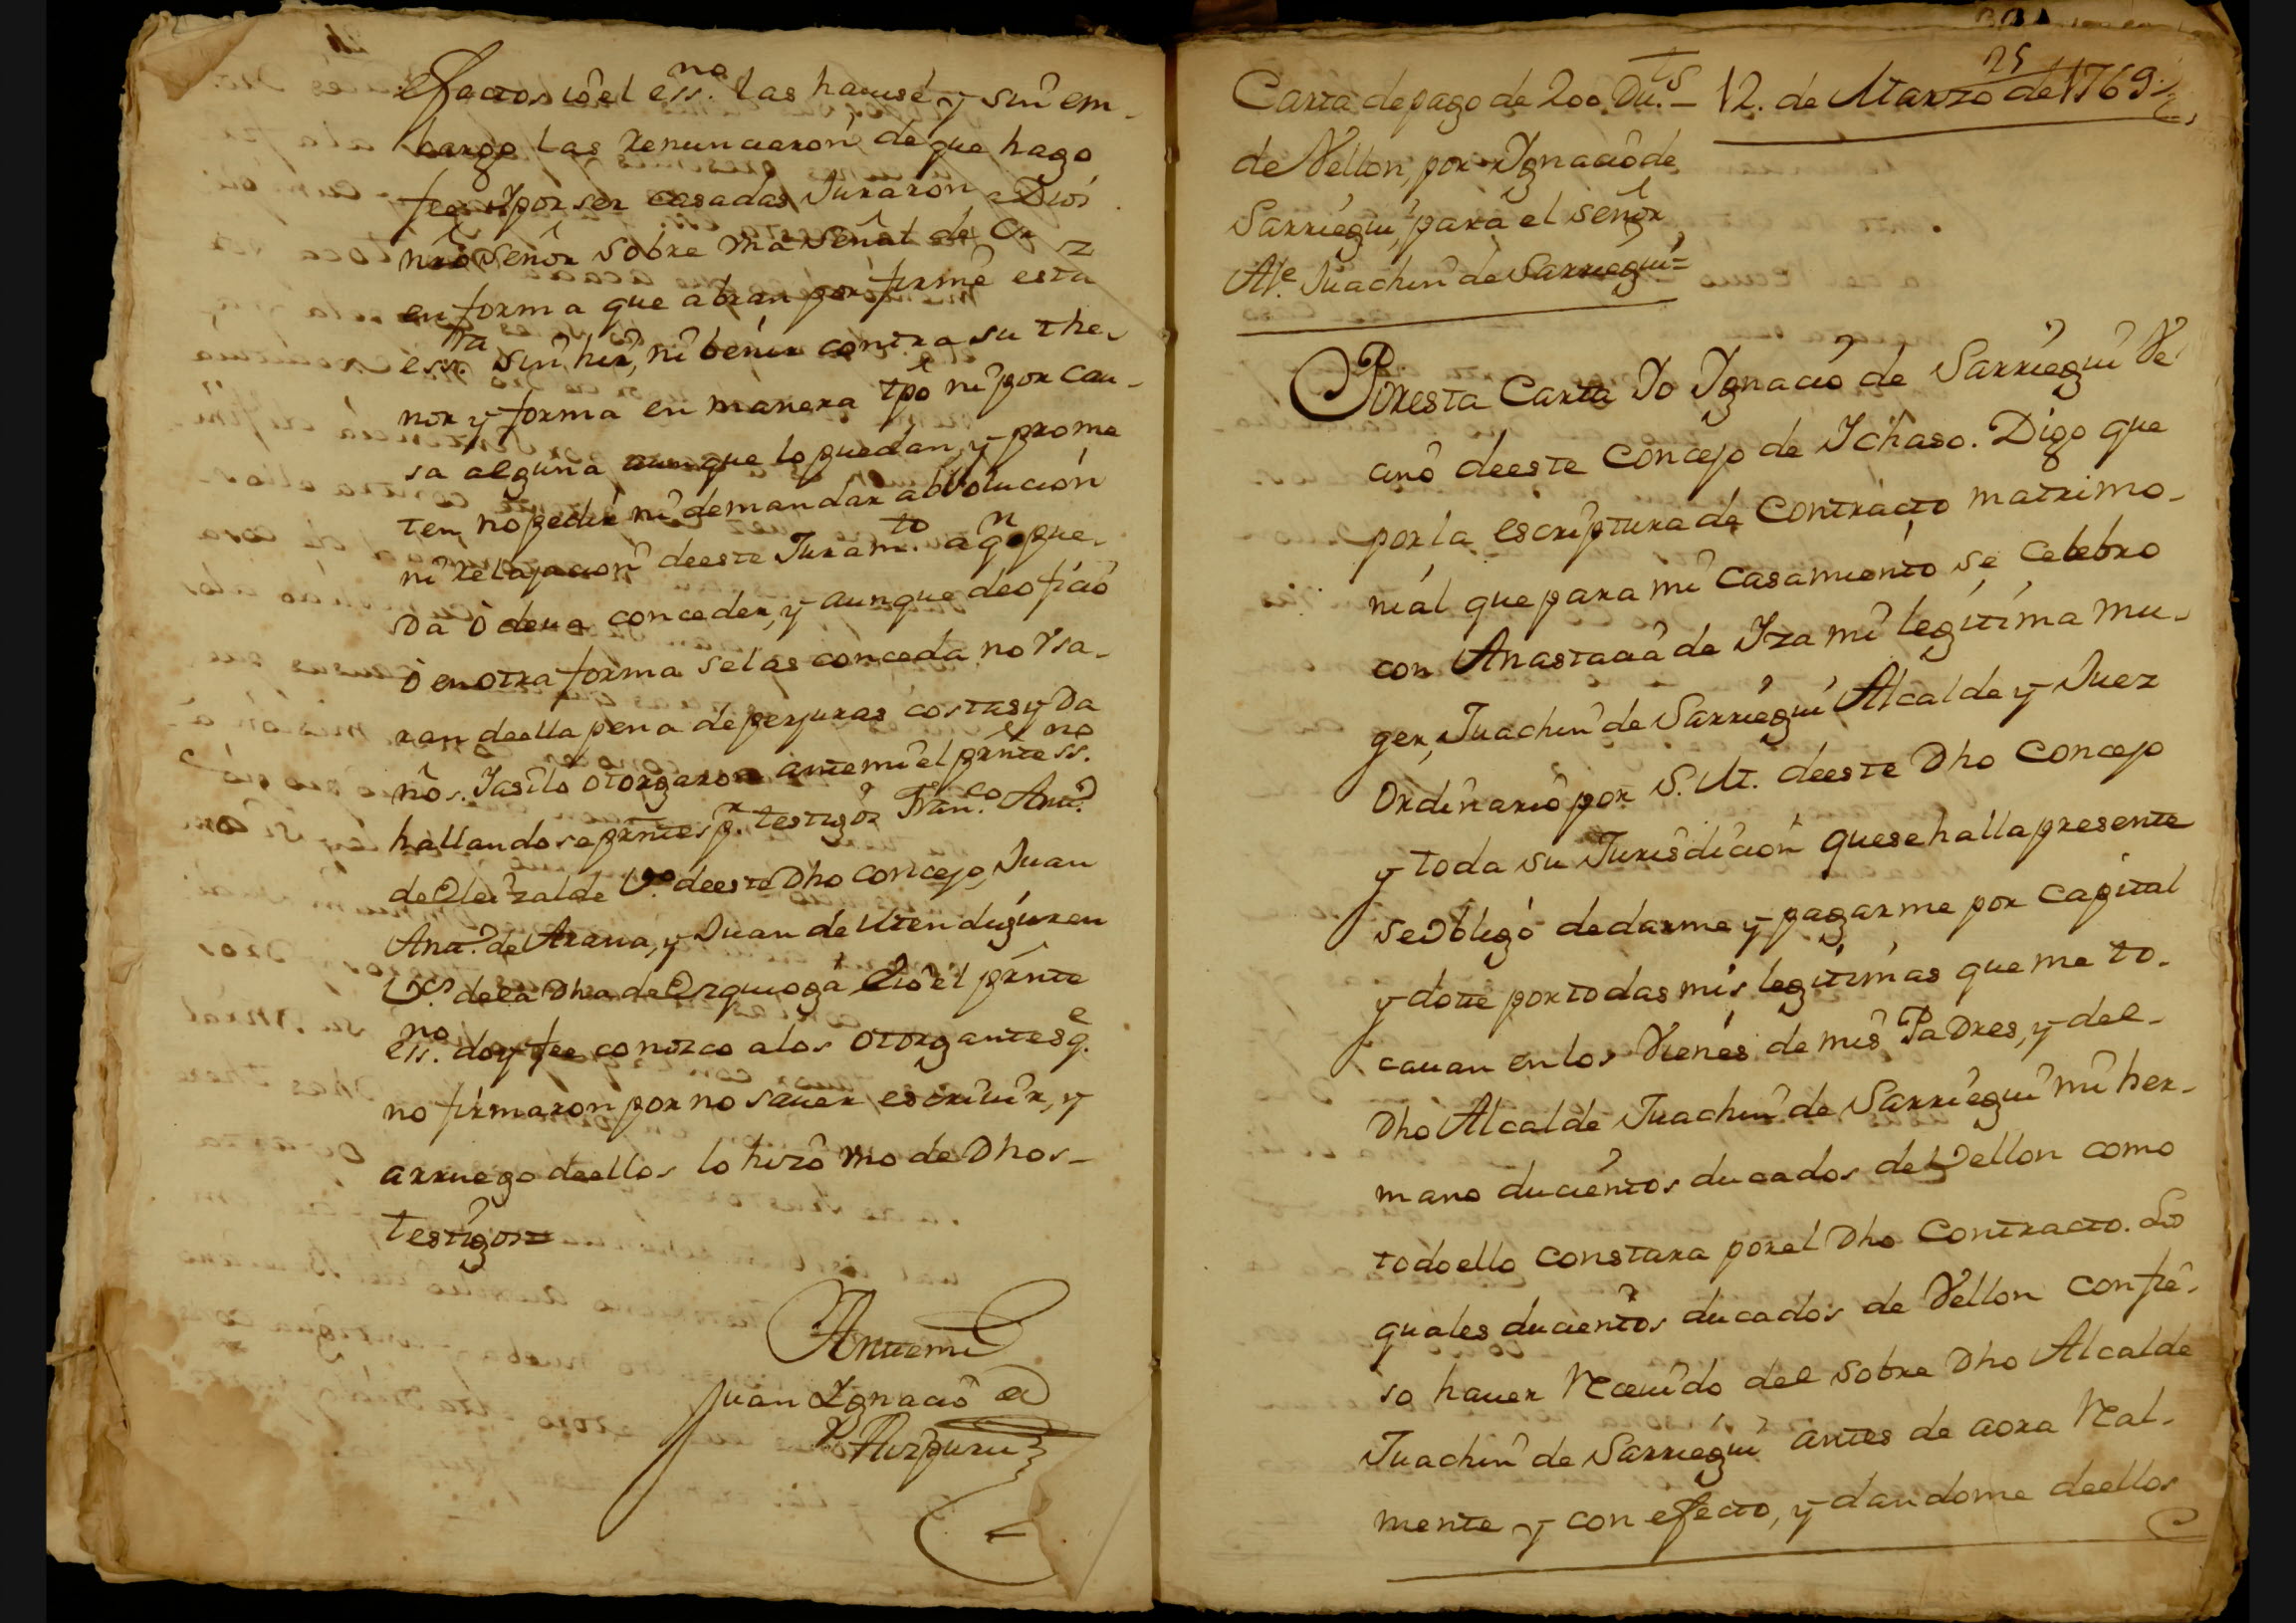 efectos ió el ess.no las havisé, y sin em-
bargo las renunciaron de que hago
fee. Y por ser casadas Juraron a Dios
nrô señor sobre vna señal de Cruz
en forma que abran por firme esta
ess.ra sin hir, ni benir contra su the-
nor y forma en manera tpô ni por cau-
sa alguna aunque lo puedan, y prome
ten, no pedir ni demandar absolucion
ni relajacion de este Juram.to a q.n pue-
da ò deua conceder, y aunque de oficio
ò en otra forma selas conceda no vsa-
ran de ella pena de perjuras costas y Da
nôs. Y asi lo otorgaron antemi el prînte ss.no
hallandose prîntes p.r testigos Fran.co Ant.o
de Oleizalde V.o de este Dho Concejo, Juan
Ant.o de Arana, y Juan de Mendiguren
V.os de la Dha de Ezquioga Èió el prînte
ess.no doy fee conozco a los otorgantes q.e
no firmaron por no sauer escriuir, y
arruego de ellos lo hizo vno de Dhos-
testigos=
Antemi
Juan Ignacio de
Aizpuru
25
Carta de pago de 200 Du.ts - 12. de Marzo de 1769.
de Vellon, por Ignacio de
Sarriegui, para el señor
Al.e Juachin de Sarriegui=
Por esta Carta Yo Ignacio de Sarriegui Ve
cino de este Concejo de Ichaso. Digo que
por la escriptura de Contracto matrimo-
nial que para mi casamiento se celebro
con Anastacia de Iza mi legitima mu-
ger, Juachin de Sarriegui Alcalde y Juez
Ordinario por S. M. de este Dho Concejo
y toda su Jurisdicion que se halla presente
se obligó de darme y pagarme por capital
y dotte por todas mis legitimas que me to-
cauan en los Vienes de mis Padres, y del-
Dho Alcalde Juachin de Sarriegui mi her-
mano ducientos ducados de Vellon como
todo ello constara por el Dho Contracto. Los
quales ducientos ducados de Vellon confie-
so hauer Receuido del sobre Dho Alcalde
Juachin de Sarriegui antes de aora Real-
mente y con efecto, y dandome de ellos